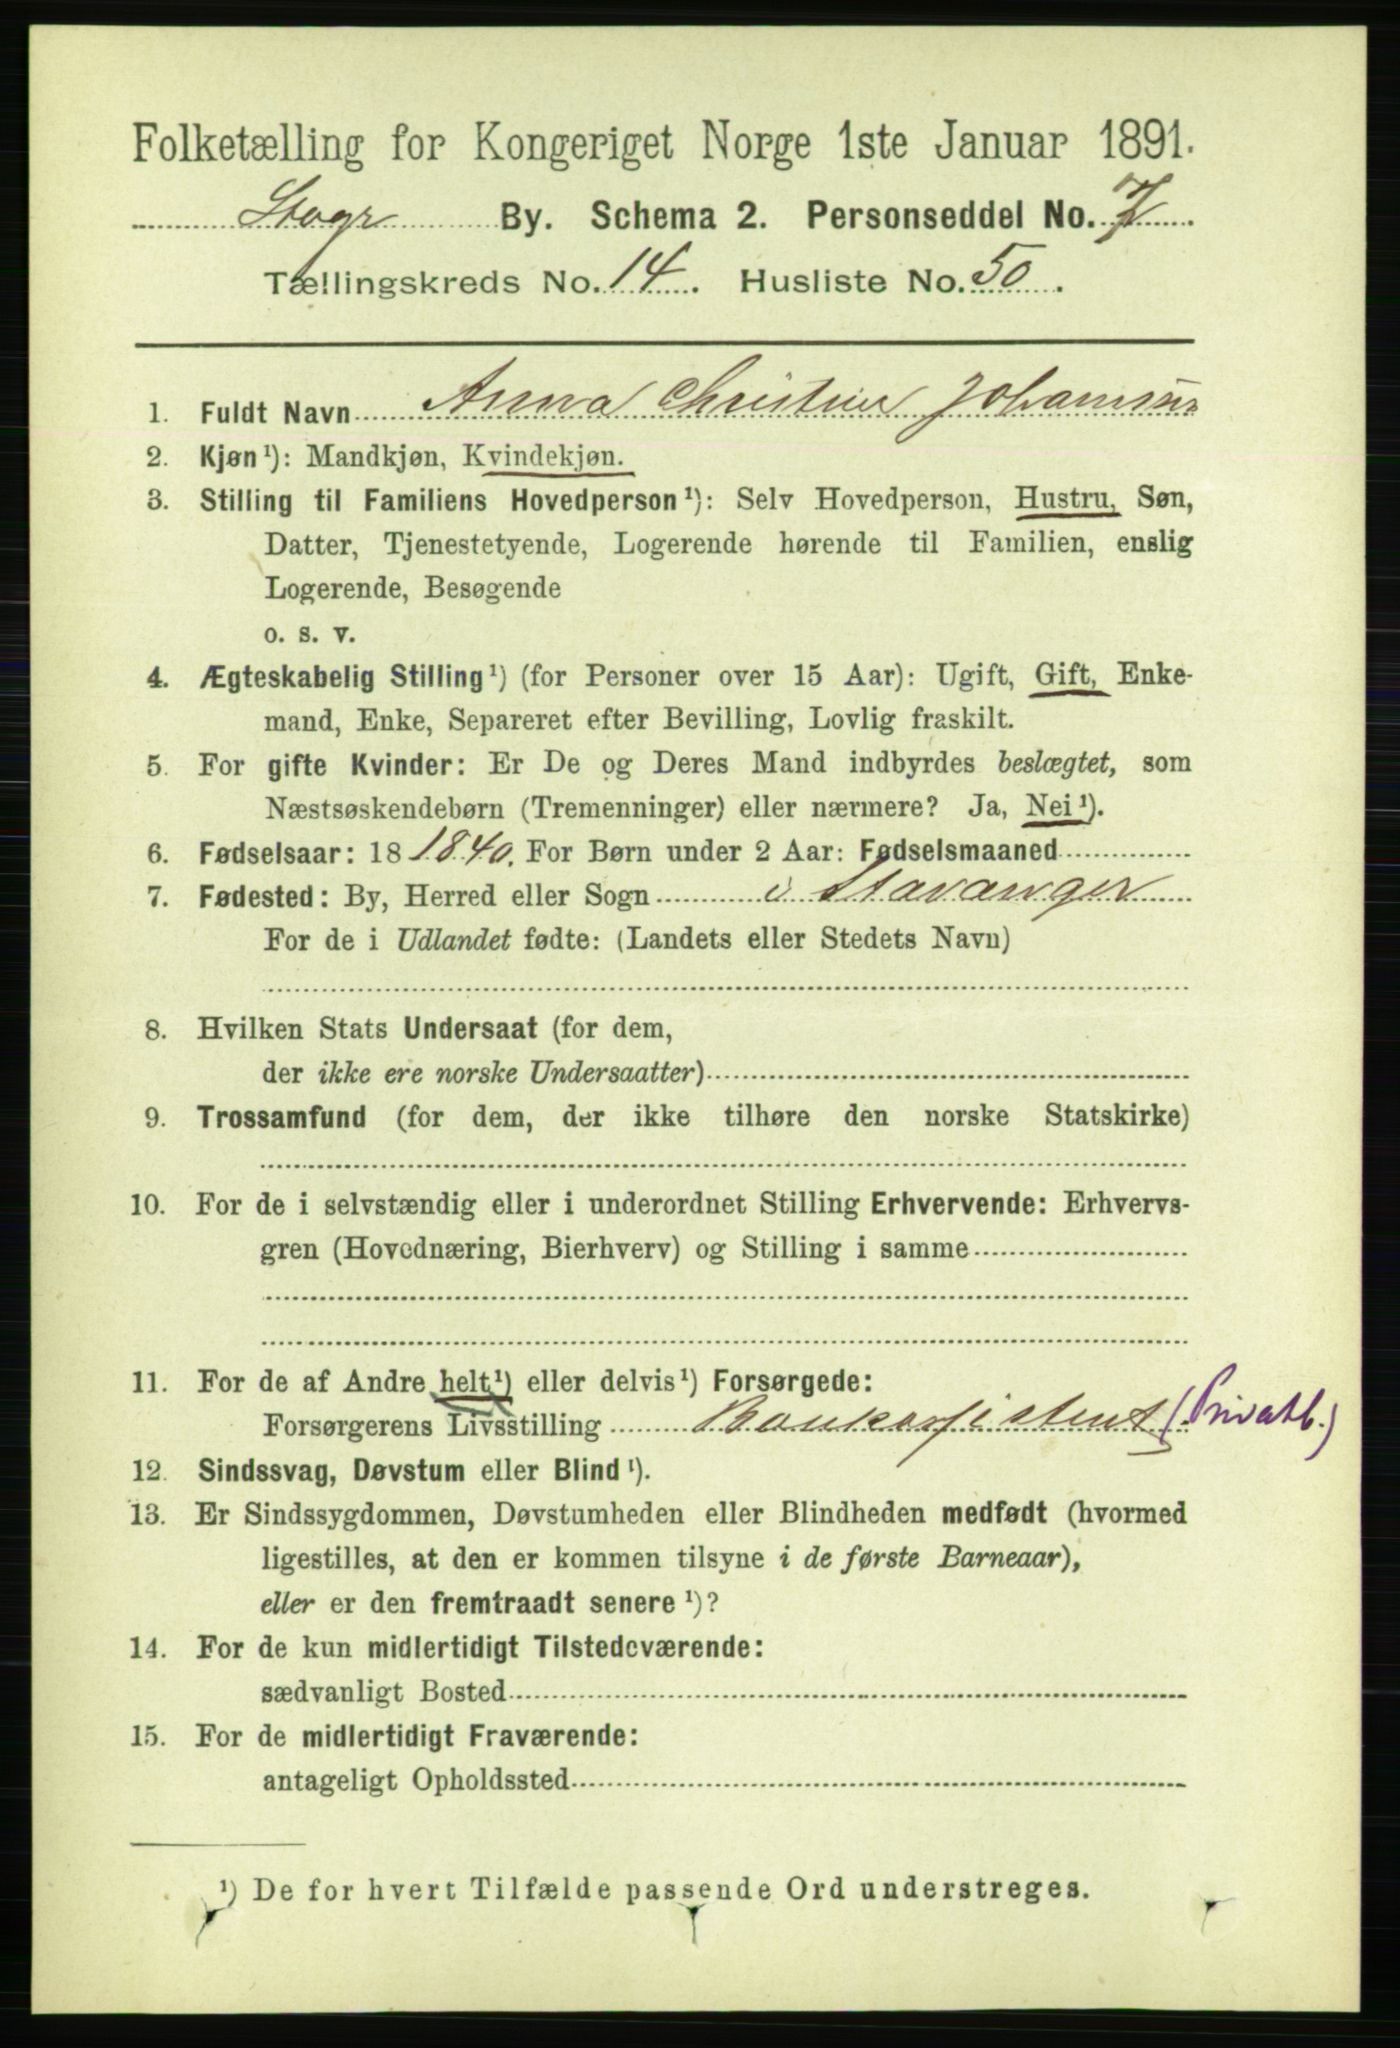 Folketælling for Kongeriget Norge 1ste Januar 1891.
Stvgr By. Schema 2. Personseddel No. 7
Tællingskreds No. 14. Husliste No. 50.
1. Fuldt Navn Anna Christine Johannsen
2. Kjøn ¹): Mandkjøn, Kvindekjøn.
3. Stilling til Familiens Hovedperson ¹): Selv Hovedperson, Hustru, Søn,
Datter, Tjenestetyende, Logerende hørende til Familien, enslig
Logerende, Besøgende
o. s. v.
4. Ægteskabelig Stilling ¹) (for Personer over 15 Aar): Ugift, Gift, Enke-
mand, Enke, Separeret efter Bevilling, Lovlig fraskilt.
5. For gifte Kvinder: Er De og Deres Mand indbyrdes beslægtet, som
Næstsøskendebørn (Tremenninger) eller nærmere? Ja, Nei ¹).
6. Fødselsaar: 18 1840. For Børn under 2 Aar: Fødselsmaaned
7. Fødested: By, Herred eller Sogn i Stavanger
For de i Udlandet fødte: (Landets eller Stedets Navn)
8. Hvilken Stats Undersaat (for dem,
der ikke ere norske Undersaatter)
9. Trossamfund (for dem, der ikke tilhøre den norske Statskirke)
10. For de i selvstændig eller i underordnet Stilling Erhvervende: Erhvervs-
gren (Hovednæring, Bierhverv) og Stilling i samme
11. For de af Andre helt ¹) eller delvis ¹) Forsørgede:
Forsørgerens Livsstilling Bankassistent (Privatb.)
12. Sindssvag, Døvstum eller Blind ¹).
13. Er Sindssygdommen, Døvstumheden eller Blindheden medfødt (hvormed
ligestilles, at den er kommen tilsyne i de første Barneaar),
eller er den fremtraadt senere ¹)?
14. For de kun midlertidigt Tilstedeværende:
sædvanligt Bosted
15. For de midlertidigt Fraværende:
antageligt Opholdssted
¹) De for hvert Tilfælde passende Ord understreges.